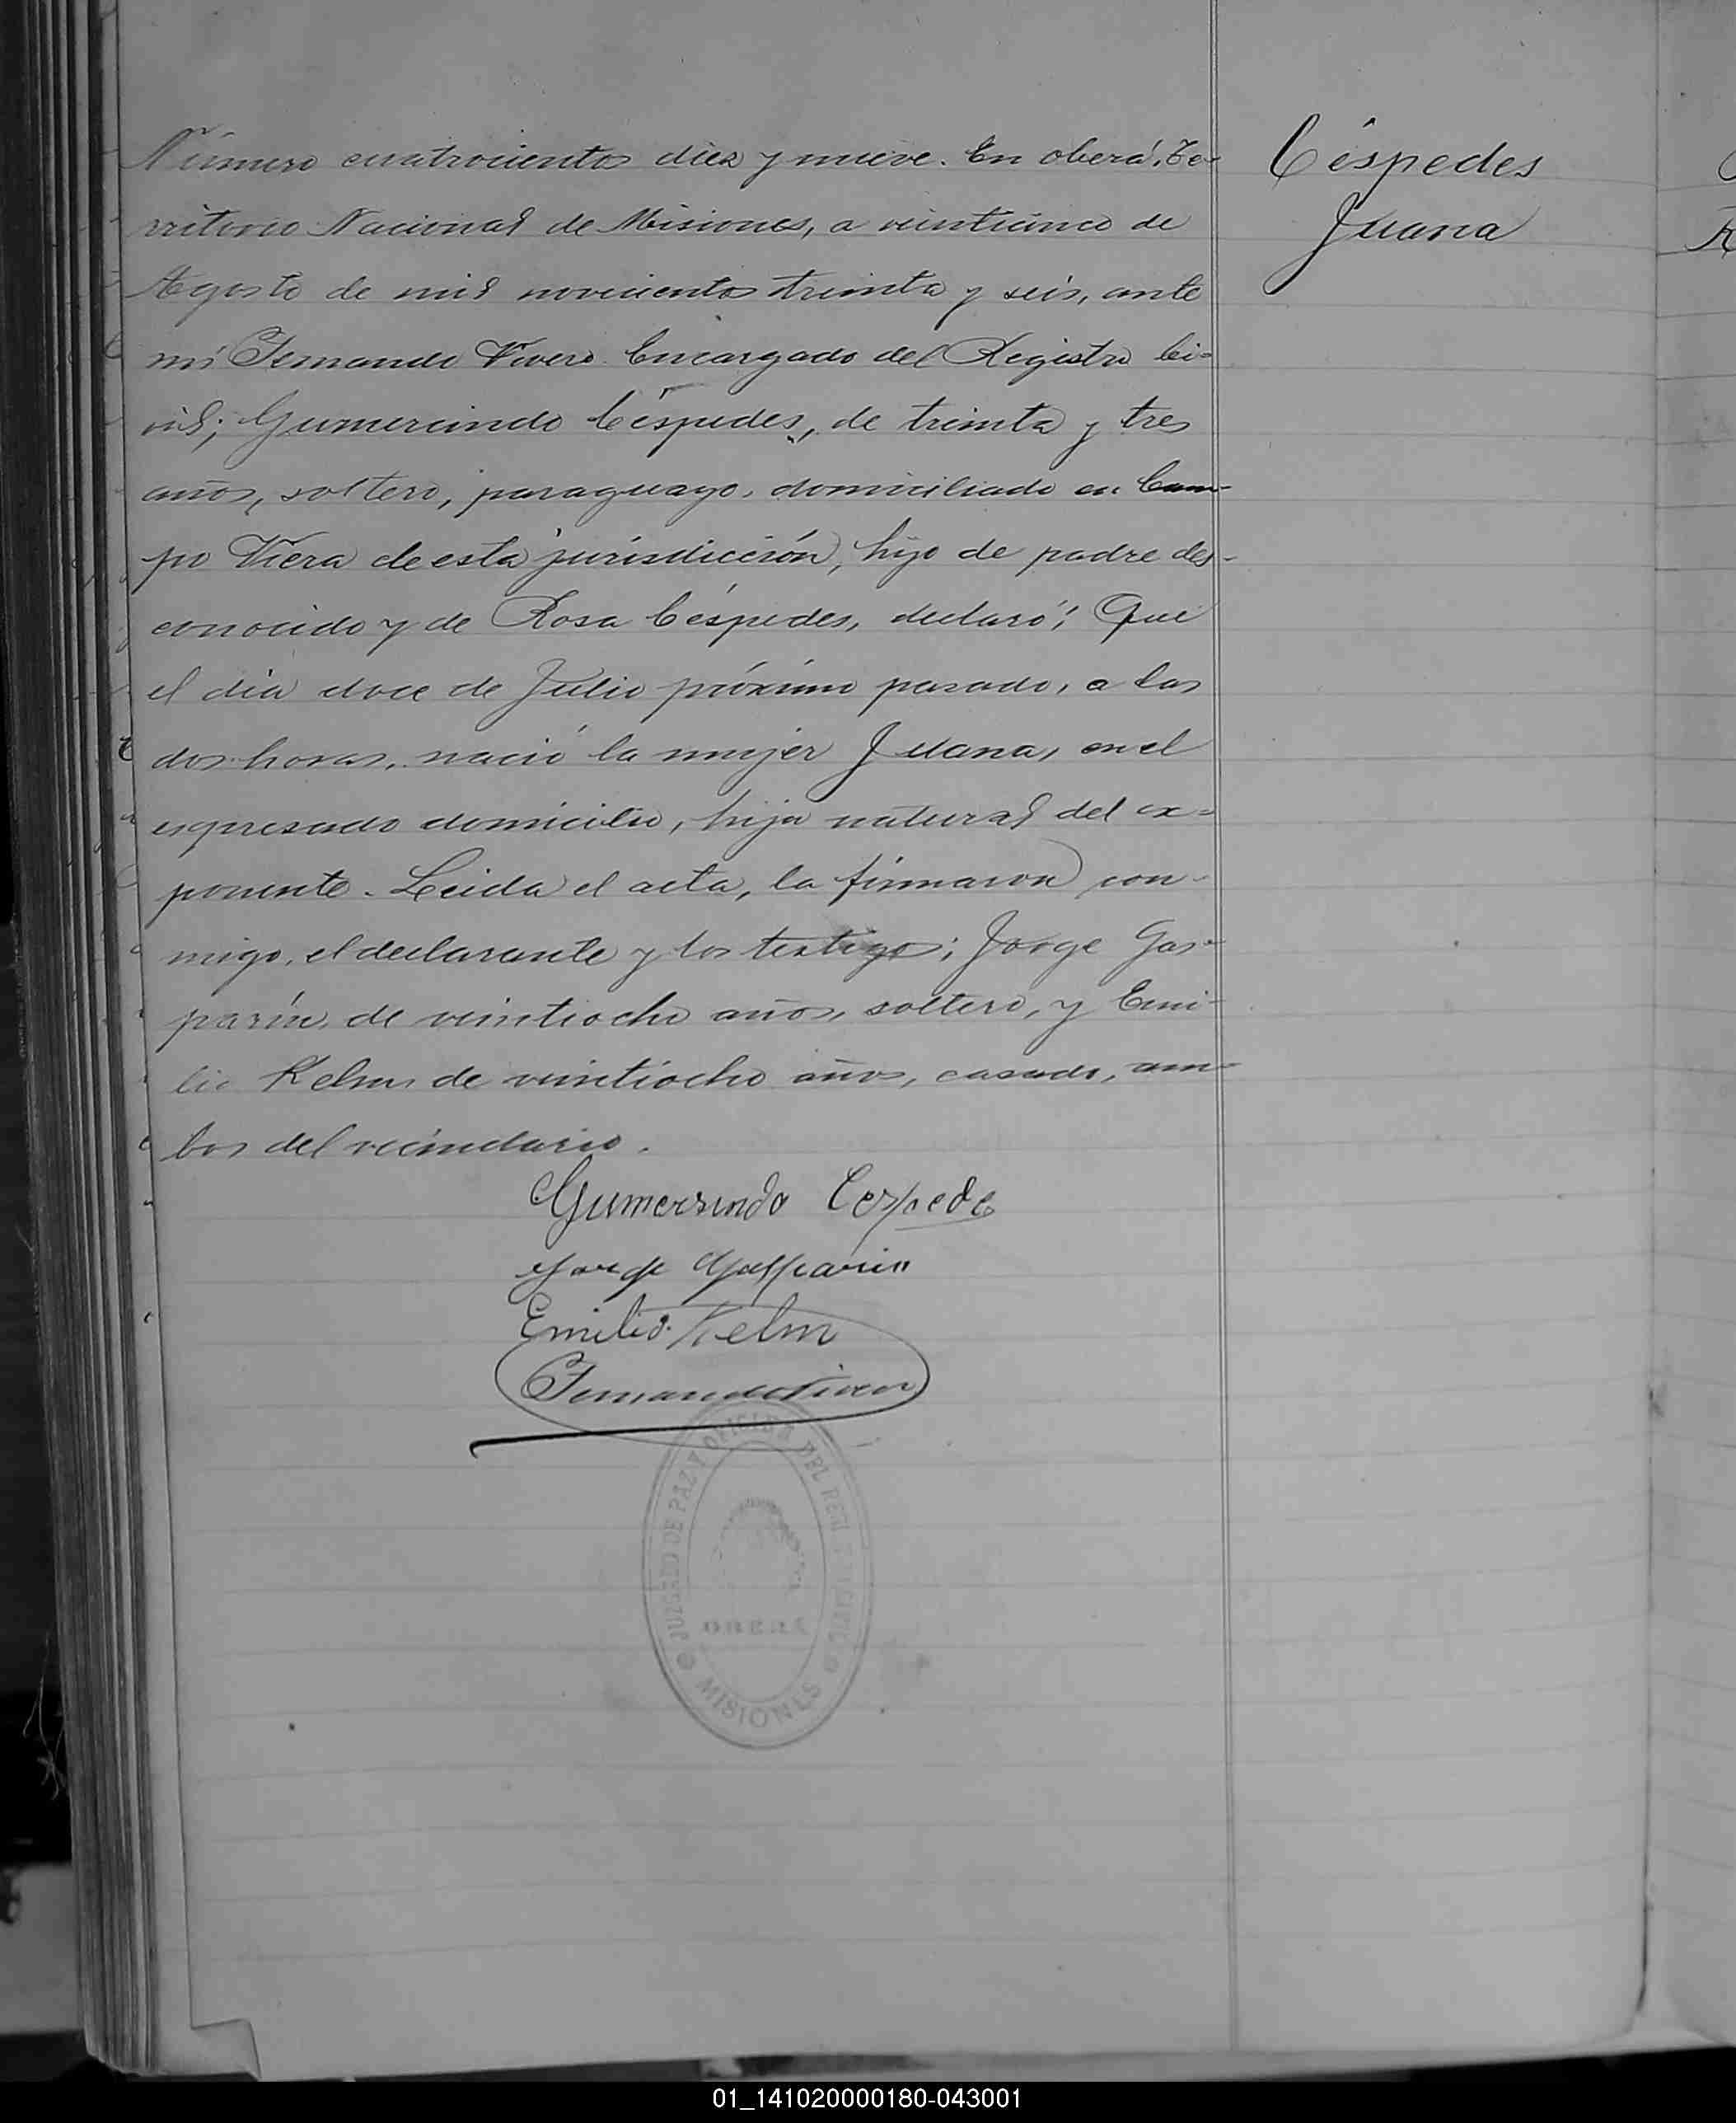 Número cuatrocientos diez y nueve. En oberá, Te-
rritorio Nacional de Misiones, a veinticinco de
Agosto de mil novecientos treinta y seis, ante
mi Fernando Vivero Encargado del Registro Ci-
vil; Gumercindo Céspedes, de treinta y tres
años, soltero, paraguayo, domiciliado en Cam-
po Viera de esta jurisdicción, hijo de padre des-
conocido y de Rosa Céspedes, declaró: Que
el día doce de Julio próximo pasado, a las
dos horas, nació la mujer Juana, en el
expresado domicilio, hija natural del ex-
ponente. Leida el acta, la firmaron con-
migo, el declarante y los testigos; Jorge Gas-
parín, de veintiocho años, soltero, y Emi-
lio Kelm de veintiocho años, casado, am-
bos del vecindario.
Céspedes
Juana
Gumersindo Cespede
Jorge Gasparin
Emilio Kelm
Fernando Vivero
JUZGADO DE PAZ Y OFICINA DEL REG. CIVIL
OBERA
MISIONES
01_141020000180-043001